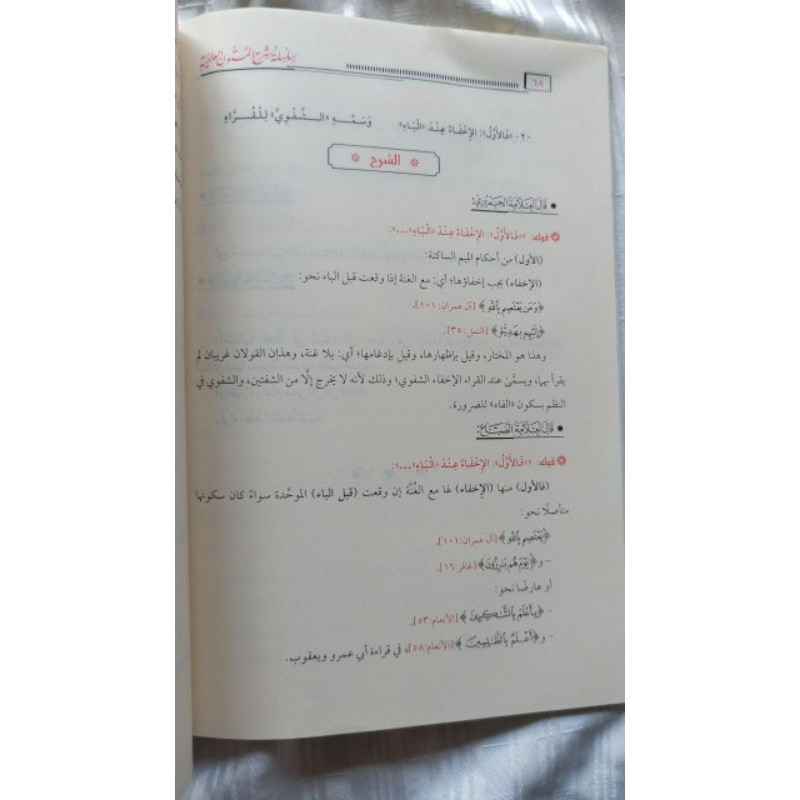 سلسلة شرح المتون العلمية
٦٨
٢٠- «فَالأَوَّلُ»: الإِخْفَاءُ عِنْدَ «الْبَاءِ» وَسَمِّهِ «الشَّفْوِيَّ» لِلْقُرَّاءِ
الشرح
• قال العلامة الجمزوري:
قوله: «فَالأَوَّلُ»: الإِخْفَاءُ عِنْدَ «الْبَاءِ»...»:
(الأول) من أحكام الميم الساكنة:
(الإخفاء) يجب إخفاؤها؛ أي: مع الغنة إذا وقعت قبل الباء نحو:
﴿وَمَن يَعْتَصِم بِٱللَّهِ﴾ [آل عمران: ١٠١].
﴿إِلَيْهِم بِهَدِيَّةٍ﴾ [النمل: ٣٥].
وهذا هو المختار، وقيل بإظهارها، وقيل بإدغامها؛ أي: بلا غنة، وهذان القولان غريبان لم
يقرأ بهما، ويسمَّىٰ عند القراء الإخفاء الشفوي؛ وذلك لأنه لا يخرج إلَّا من الشفتين، والشفوي في
النظم بسكون «الفاء» للضرورة.
• قال العلامة الضباع:
قوله: «فَالأَوَّلُ»: الإِخْفَاءُ عِنْدَ «الْبَاءِ»...»:
(فالأول) منها (الإخفاء) لها مع الغُنَّة إن وقعت (قبل الباء) الموحَّدة سواءً كان سكونها
متأصلًا نحو:
﴿يَعْتَصِم بِٱللَّهِ﴾ [آل عمران: ١٠١].
- و﴿يَوْمَ هُم بَٰرِزُونَ﴾ [غافر: ١٦].
أو عارضًا نحو:
- ﴿بِأَعْلَمَ بِٱلشَّٰكِرِينَ﴾ [الأنعام: ٥٣].
- و﴿أَعْلَمُ بِٱلظَّٰلِمِينَ﴾ [الأنعام: ٥٨]، في قراءة أبي عمرو ويعقوب.